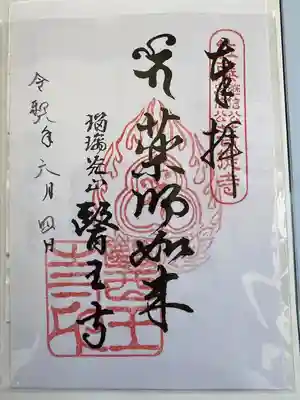 奉拝
薬師如来
瑠璃光山
醫王寺
令和元年六月四日
醫王寺印